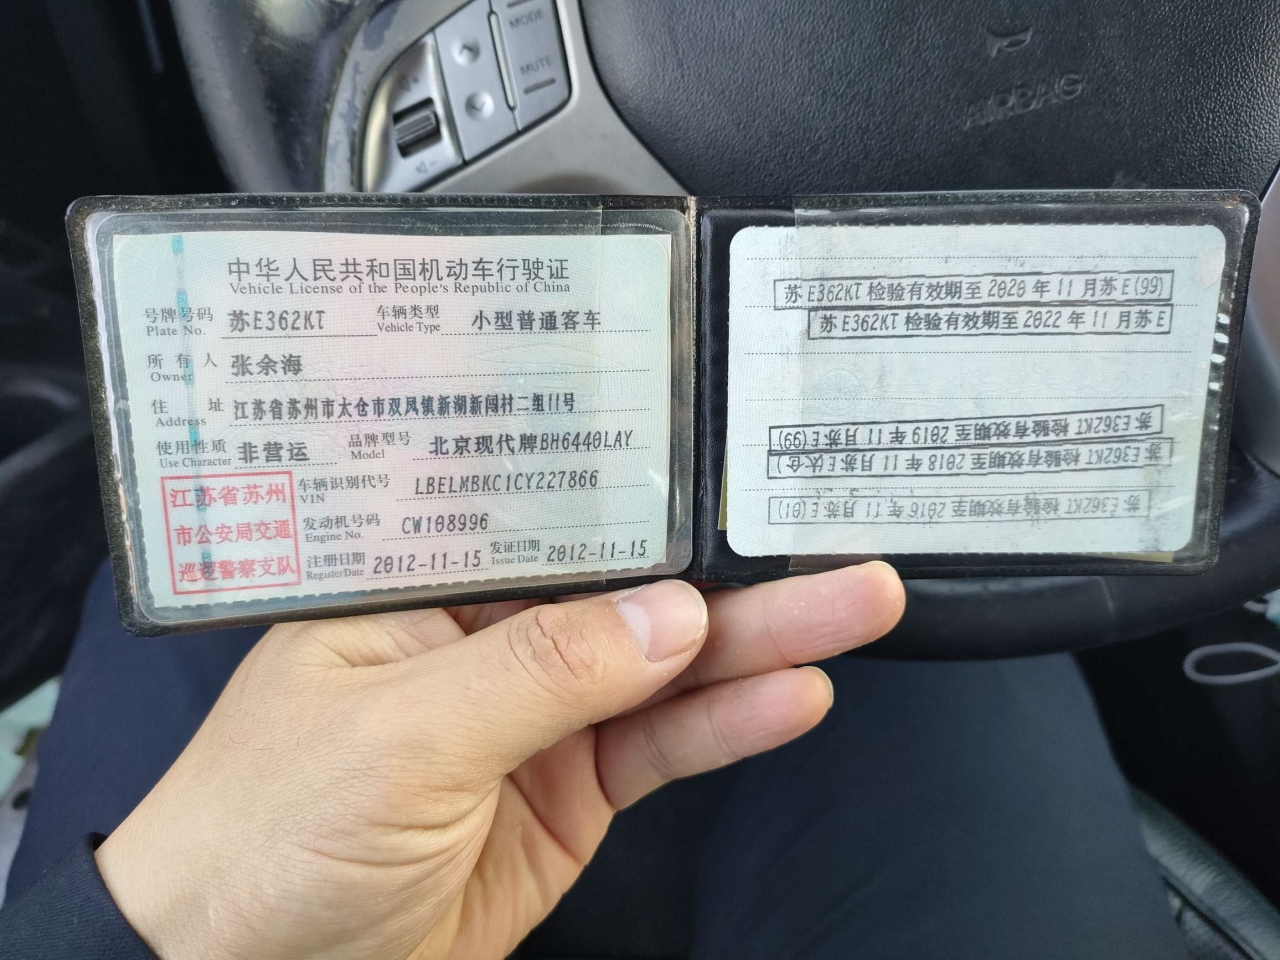 MODE
MUTE
AIRBAG
中华人民共和国机动车行驶证
Vehicle License of the People's Republic of China
号牌号码 苏E362KT 车辆类型 小型普通客车
Plate No. Vehicle Type
所有人 张余海
Owner
住址 江苏省苏州市太仓市双凤镇新湖新闯村二组11号
Address
使用性质 非营运 品牌型号 北京现代牌BH6440LAY
Use Character Model
江苏省苏州
市公安局交通
巡逻警察支队
车辆识别代号 LBELMBKC1CY227866
VIN
发动机号码 CW108996
Engine No.
注册日期 2012-11-15 发证日期 2012-11-15
Register Date Issue Date
苏E362KT检验有效期至2020年11月苏E(99)
苏E362KT检验有效期至2022年11月苏E
苏E362KT检验有效期至2019年11月苏E(99)
苏E362KT检验有效期至2018年11月苏E(太仓)
苏E362KT检验有效期至2016年11月苏E(01)